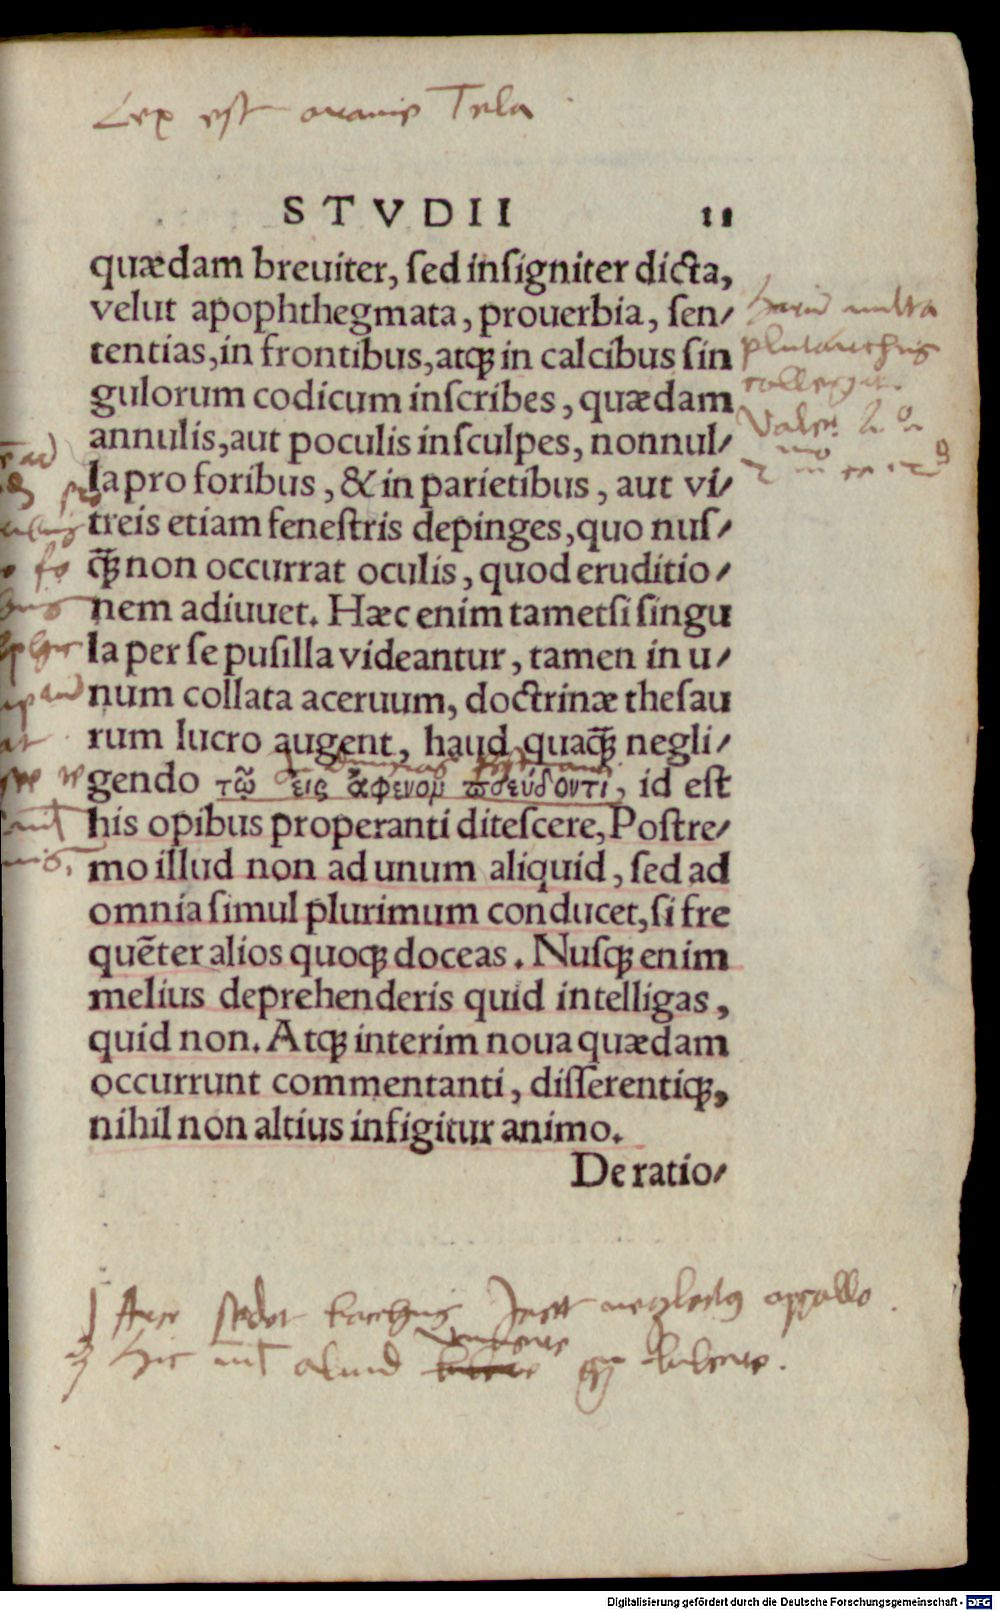 Lex est aranie Tela
STVDII 11
quædam breuiter, sed insigniter dicta,
velut apophthegmata, prouerbia, sen/
tentias, in frontibus, atqꝫ in calcibus sin
gulorum codicum inscribes, quædam
annulis, aut poculis insculpes, nonnul/
la pro foribus, & in parietibus, aut vi/
treis etiam fenestris depinges, quo nus/
ꝙ̃ non occurrat oculis, quod eruditio/
nem adiuuet. Hæc enim tametsi singu
la per se pusilla videantur, tamen in u/
num collata aceruum, doctrinæ thesau
rum lucro augent, haud quaꝙ̃ negli/
gendo τῷ εἰς ἄφενομ σπεύδοντι, id est
his opibus properanti ditescere, Postre/
mo illud non ad unum aliquid, sed ad
omnia simul plurimum conducet, si fre
quēter alios quoqꝫ doceas. Nusqꝫ enim
melius deprehenderis quid intelligas,
quid non. Atqꝫ interim noua quædam
occurrunt commentanti, disserentiqꝫ,
nihil non altius infigitur animo.
De ratio/
multa
plutarchus
sedet bacchus neglecto apollo
Hic aliud
Digitalisierung gefördert durch die Deutsche Forschungsgemeinschaft - DFG